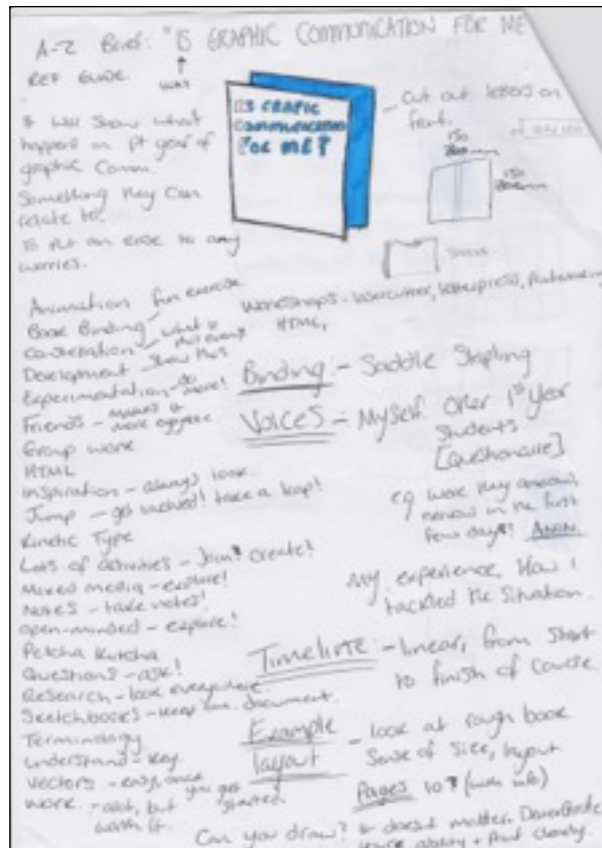 A-Z Brief: "IS GRAPHIC COMMUNICATION FOR ME
REF GUIDE.
It will show what
happens in 1st year of
graphic Comm.
Something they can
relate to.
To put an ease to any
worries.
IS GRAPIC
COMMUNICATION
FOR ME?
Cut out letters on
front.
150
150
Animation fun exercise
Book Binding
- what is this even?
Development - show this
Experimentation - do more!
Friends - makes it more
Group work
HTML
Inspiration - always look.
Jump - get involved! take a leap!
Kinetic Type
Lots of activities - Join? create?
Mixed media - explore!
Notes - take notes!
open-minded - explore!
Petcha Kutcha
Questions - ask!
Research - look everywhere.
Sketchbooks - keep one. document.
Terminology
Understand - key.
Vectors - easy, once you get started.
Work - alot, but
worth it.
Workshops - lasercutter, letterpress, printmaking
HTML,
Binding - Saddle Stapling
Voices - Myself. Other 1st year
Students
[Questionaire]
eg were they anxious,
nervous in the first
few days?
My experience. How I
tackled the situation.
Timeline - linear, from start
to finish of course.
Example
layout - look at rough book
Sense of size, layout
Pages 10? (with info)
Can you draw? It doesn't matter.